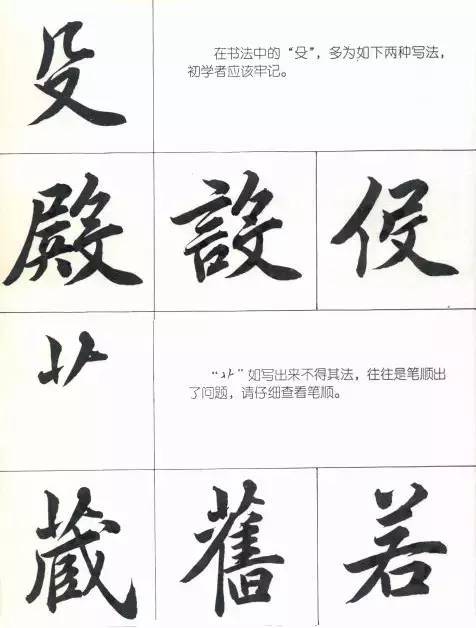 殳
在书法中的“殳”，多为如下两种写法，
初学者应该牢记。
殿 設 役
艹
“艹”如写出来不得其法，往往是笔顺出
了问题，请仔细查看笔顺。
藏 舊 若